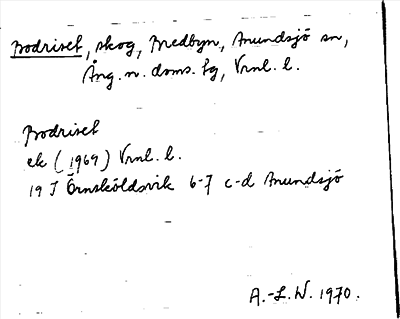 Bodriset, skog, Bredbyn, Anundsjö sn,
Ång. n. doms. fg, Vrnl. l.
Bodriset
ek (1969) Vrnl. l.
19 J Örnsköldsvik 6-7 c-d Anundsjö
A.-L. W. 1970.